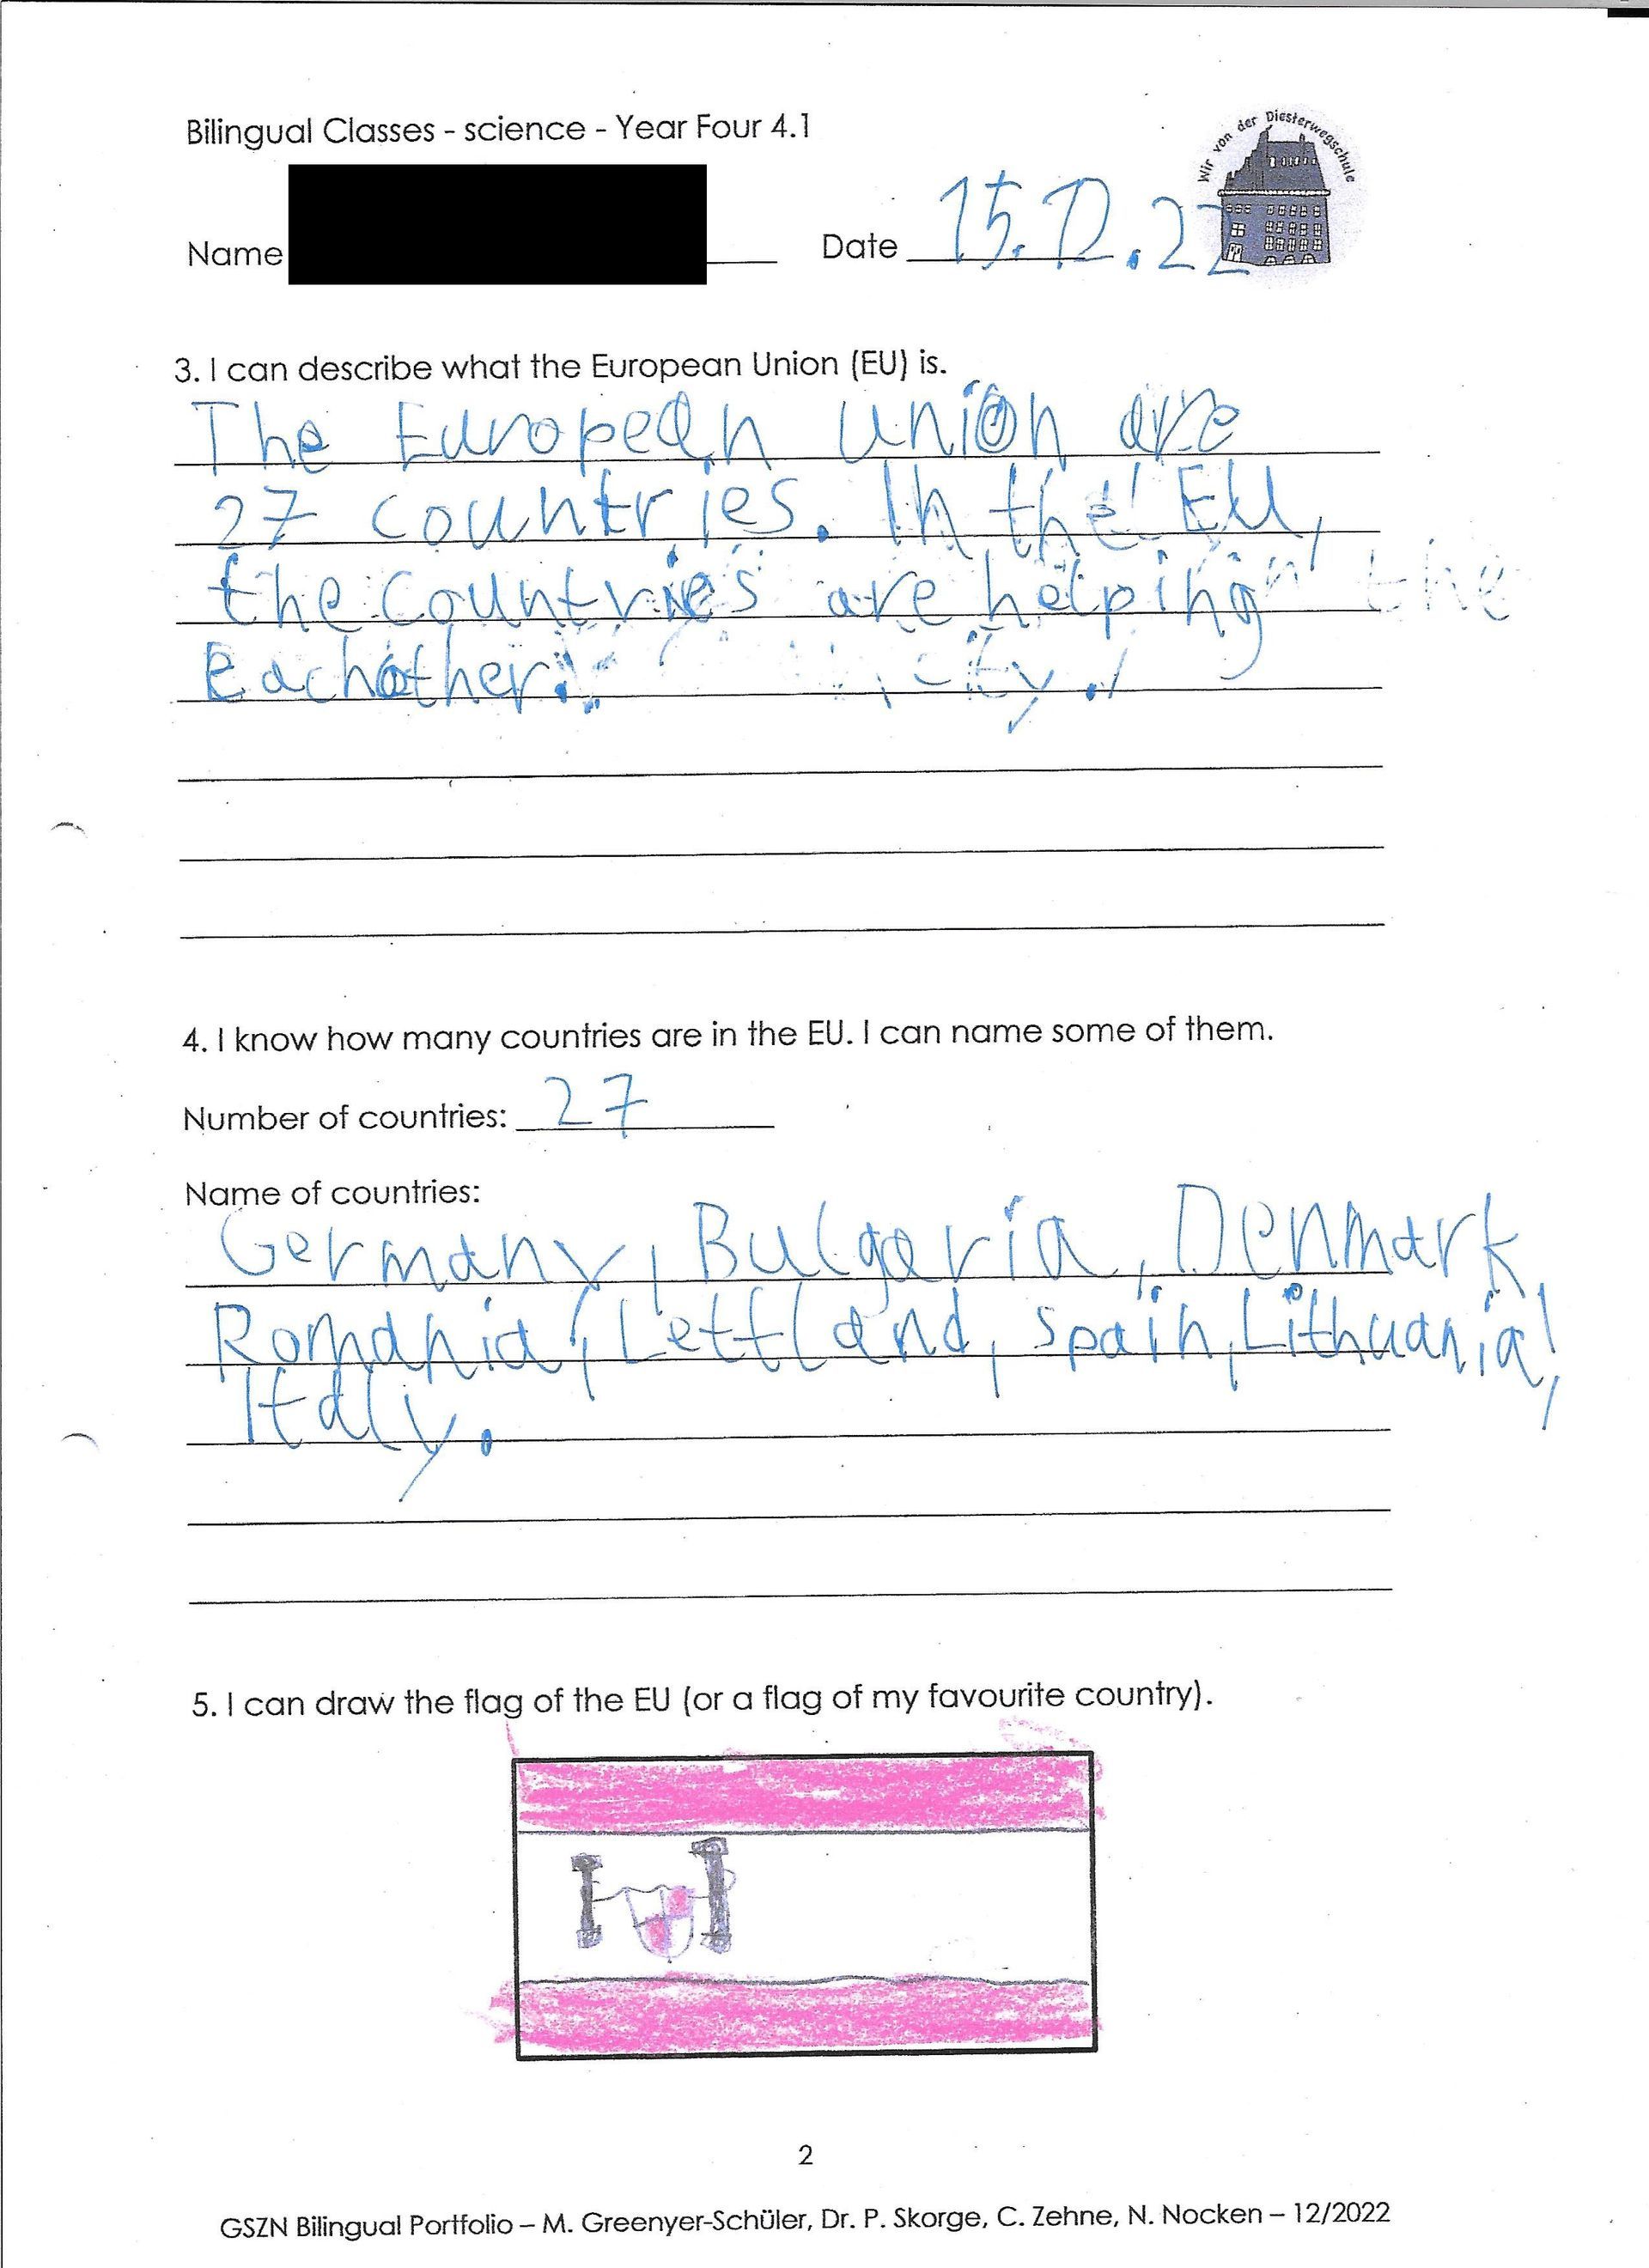 Bilingual Classes - science - Year Four 4.1
Wir von der Diesterwegschule
Name Date 15.12.22
3. I can describe what the European Union (EU) is.
The European union are
27 countries. In the EU,
the countries are helping the
Eachother. city.
4. I know how many countries are in the EU. I can name some of them.
Number of countries: 27
Name of countries:
Germany, Bulgaria, Denmark
Romania, Lettland, spain, Lithuania,
Italy.
5. I can draw the flag of the EU (or a flag of my favourite country).
2
GSZN Bilingual Portfolio – M. Greenyer-Schüler, Dr. P. Skorge, C. Zehne, N. Nocken – 12/2022